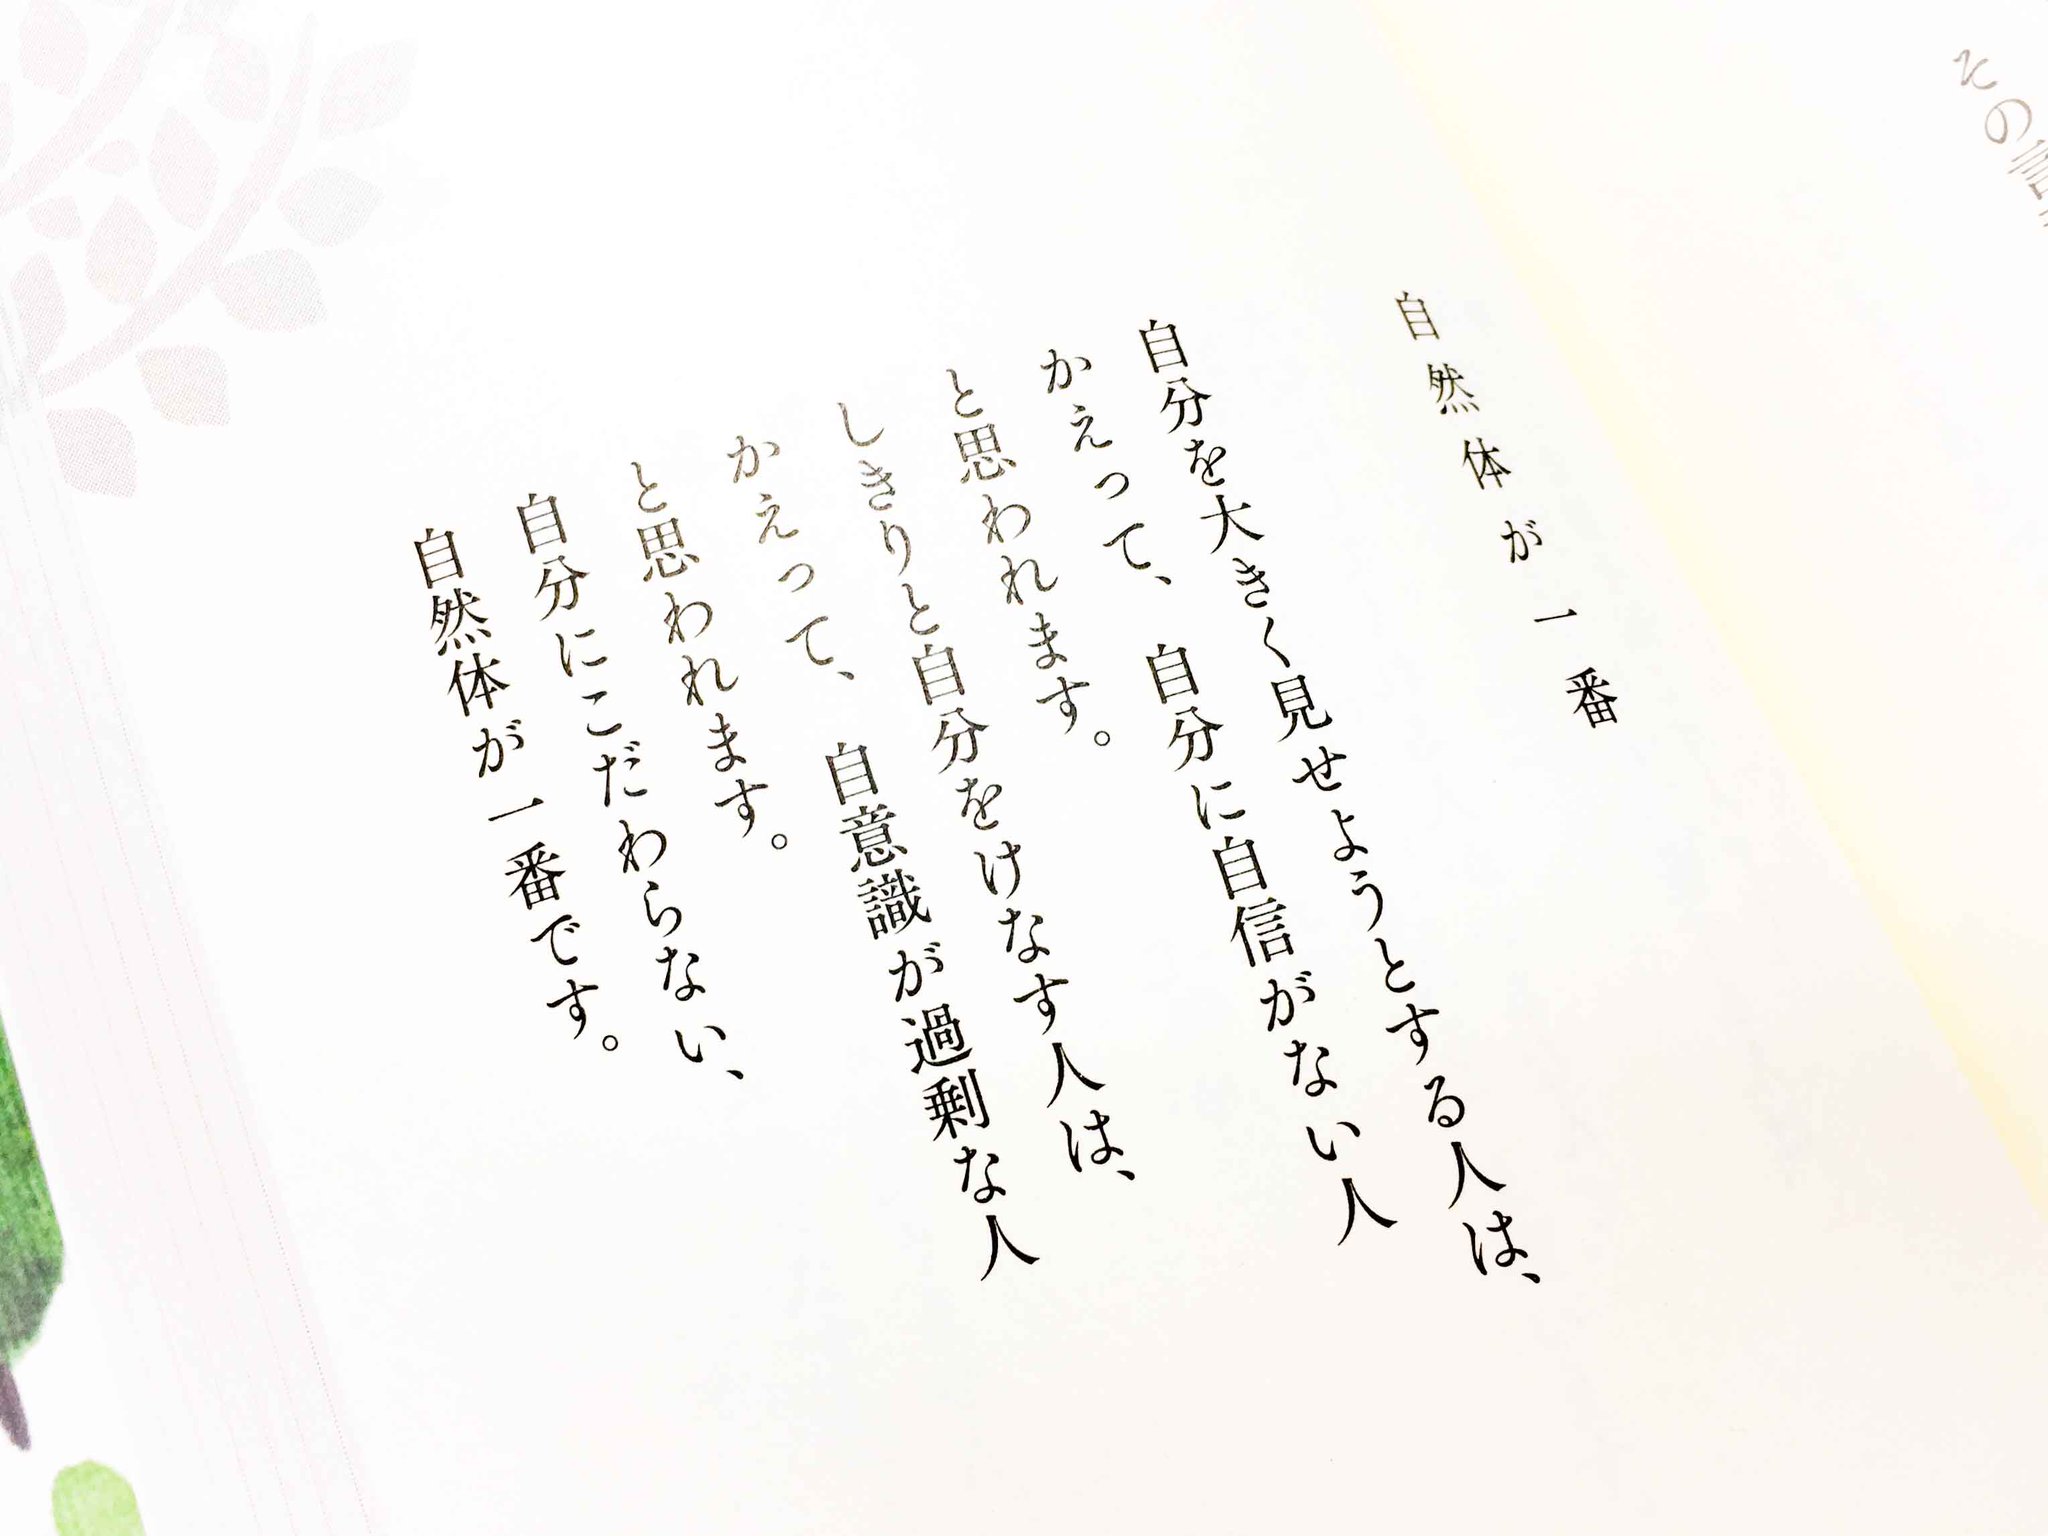 その言
自然体が一番
自分を大きく見せようとする人は、
かえって、自分に自信がない人
と思われます。
しきりと自分をけなす人は、
かえって、自意識が過剰な人
と思われます。
自分にこだわらない、
自然体が一番です。